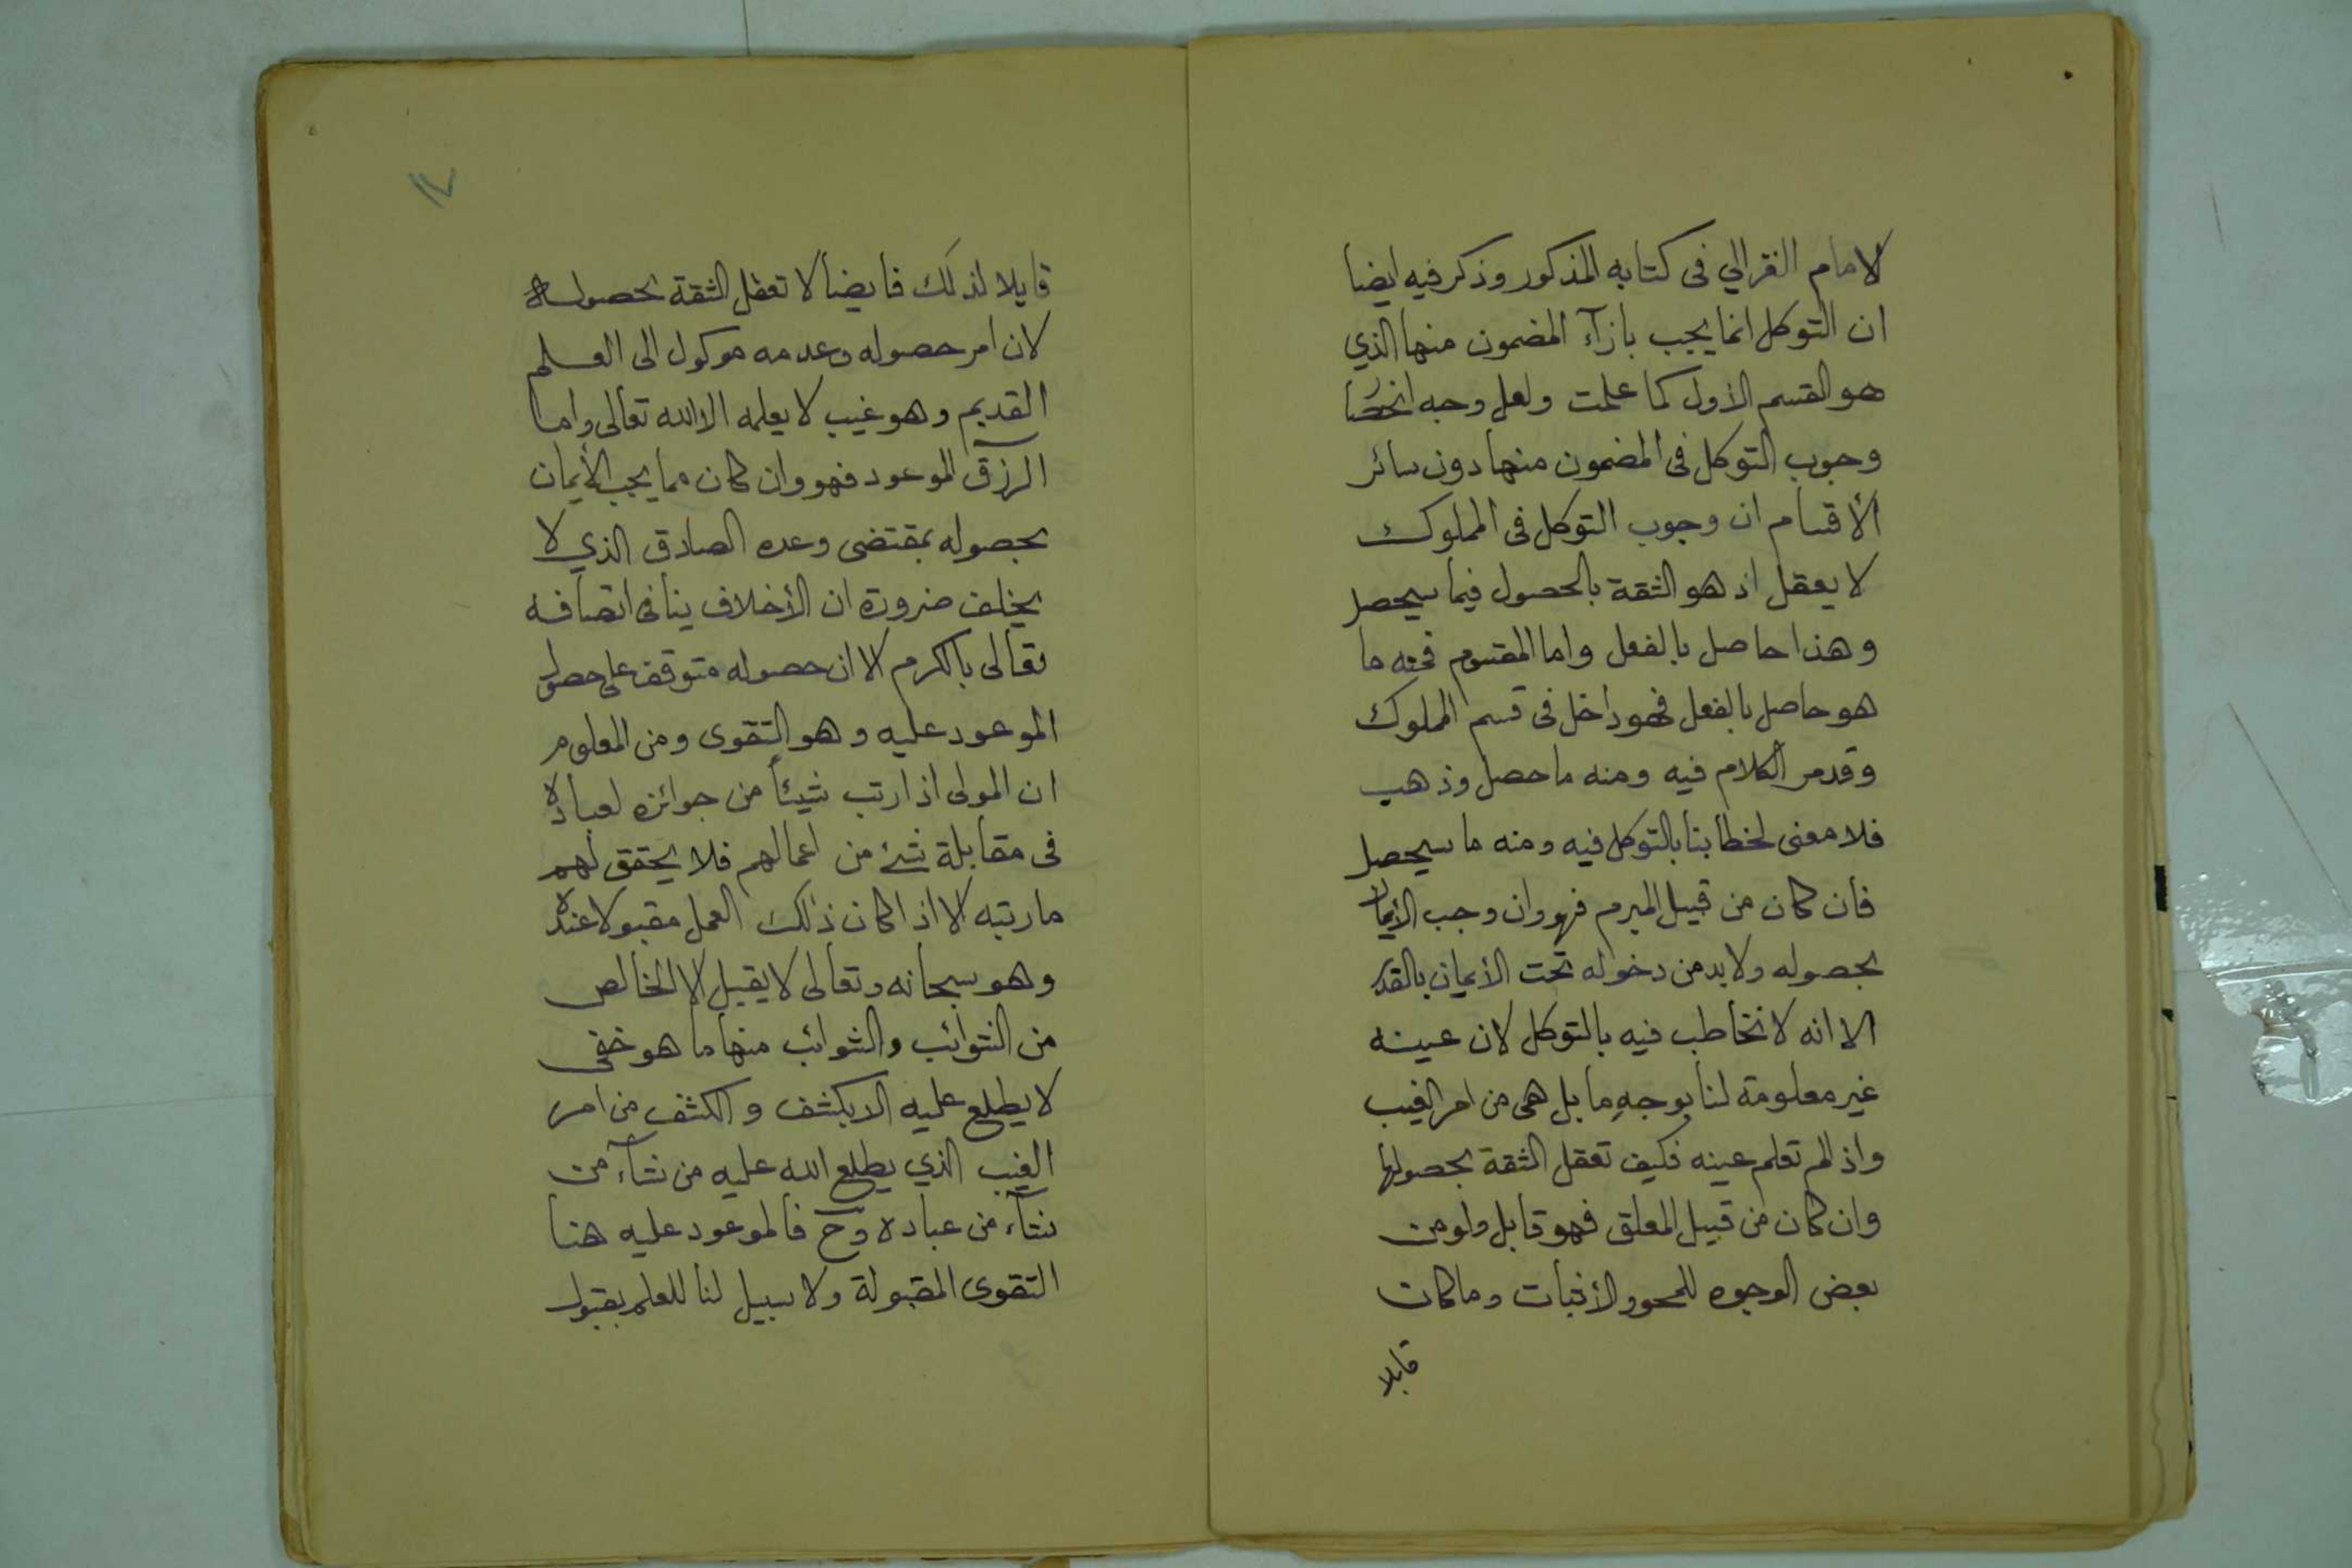 لامام الغزالي فى كتابه المذكور وذكر فيه ايضا
ان التوكل انما يجب بازآء المضمون منها الذي
هو القسم الأول كما علمت ولعل وجه انحصا
وجوب التوكل فى المضمون منها دون سائر
الأقسام ان وجوب التوكل فى المملوك
لا يعقل اذ هو الثقة بالحصول فيما سيحصل
وهذا حاصل بالفعل واما المقسوم فمنه ما
هو حاصل بالفعل فهو داخل فى قسم المملوك
وقد مر الكلام فيه ومنه ما حصل وذهب
فلا معنى لخطابنا بالتوكل فيه ومنه ما سيحصل
فأن كان من قبيل المبرم فهو وان وجب الأيمان
بحصوله ولا بد من دخوله تحت الأيمان بالقدر
الا انه لا نخاطب فيه بالتوكل لان عينه
غير معلومة لنا بوجهِ ما بل هى من امر الغيب
واذا لم تعلم عينه فكيف تعقل الثقة بحصولها
وان كان من قبيل المعلق فهو قابل ولو من
بعض الوجوه للمحو والأثبات وما كان
قابلا
١٧
قابلا لذلك فأيضا لا تعقل الثقة بحصوله
لان امر حصوله وعدمه موكول الى العلم
القديم وهو غيب لا يعلمه الا الله تعالى واما
الرزق الموعود فهو وان كان مما يجب الأيمان
بحصوله بمقتضى وعده الصادق الذي لا
يخلف ضرورة ان الأخلاف ينافى اتصافه
تعالى بالكرم الا ان حصوله متوقف على حصول
الموعود عليه وهو التقوى ومن المعلوم
ان المولى اذا رتب شيئاً من جوائزه لعباده
فى مقابلة شئ من اعمالهم فلا يحقق لهم
ما رتبه الا اذا كان ذلك العمل مقبولا عنده
وهو سبحانه وتعالى لا يقبل الا الخالص
من الشوائب والشوائب منها ما هو خفى
لا يطلع عليه الا بكشف والكشف من امر
الغيب الذي يطلع الله عليه من نشآء من
نشآء من عباده وح فالموعود عليه هنا
التقوى المقبولة ولا سبيل لنا للعلم بقبول